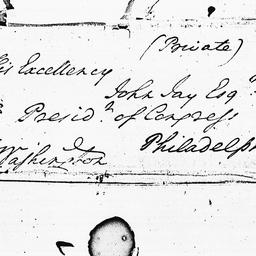 (Private)
His Excellency
John Jay Esqr
Presidt of Congress
Philadelph
Washington